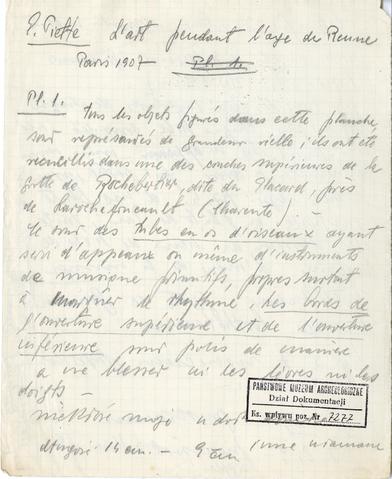 E. Piette L'art pendant l'age de Renne
Paris 1907 - Pl. 1.
Pl. 1. tous les objets figurés dans cette planche
sont représentés de grandeur réelle; ils ont été
recueillis dans une des couches supérieures de la
grotte de Rocheberthier, dite du Placard, près
de Larochefoucault (Charente). -
Ce sont des tubes en os d'oiseaux ayant
servi d'appeaux ou même d'instruments
de musique primitifs, propres surtout
à marquer le rhythme. Les bords de
l'ouverture supérieure et de l'ouverture
inférieure sont polis de manière
a ne blesser ni les lèvres ni les
doigts -
niektóre mają
długość 14 cm. - 9 cm inne
PAŃSTWOWE MUZEUM ARCHEOLOGICZNE
Dział Dokumentacji
Ks. wpływu poz. Nr 2272